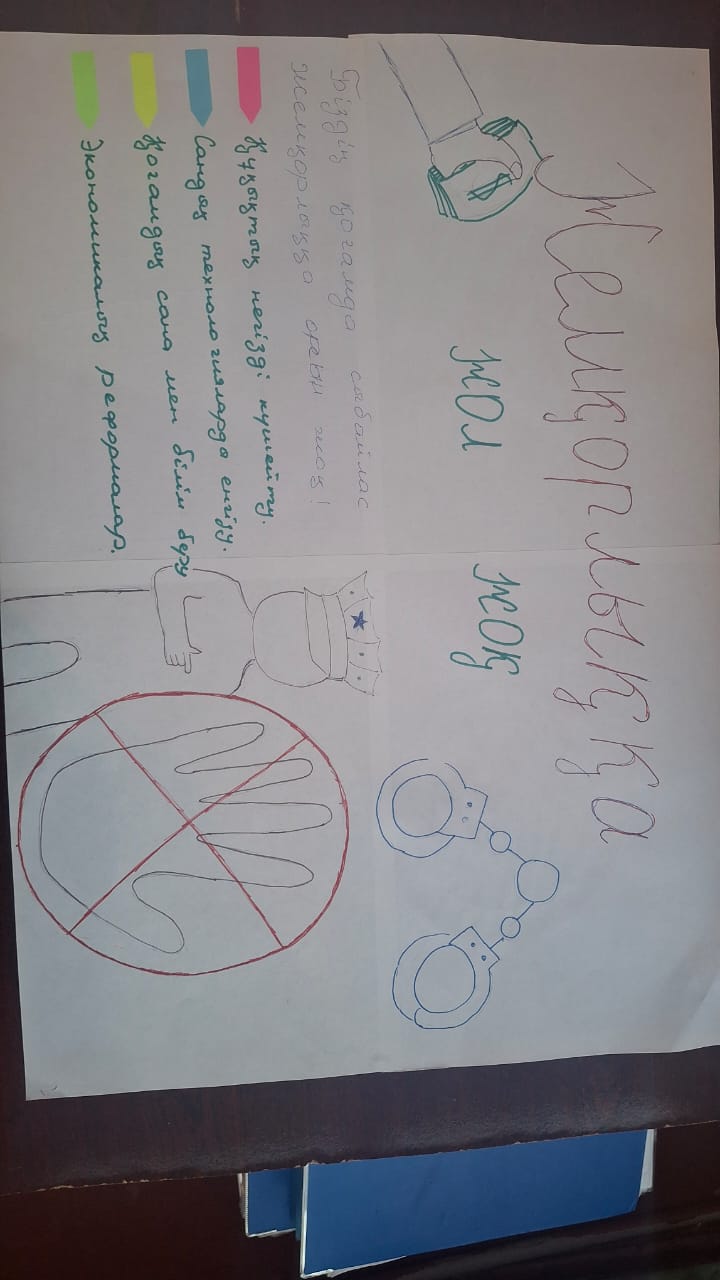 Жемқорлыққа
жол жоқ
Біздің қоғамда сыбайлас
жемқорлыққа орын жоқ!
Құқықтық негізді күшейту.
Сандық технологияларды енгізу.
Қоғамдық сана мен білім беру
Экономикалық реформалар.